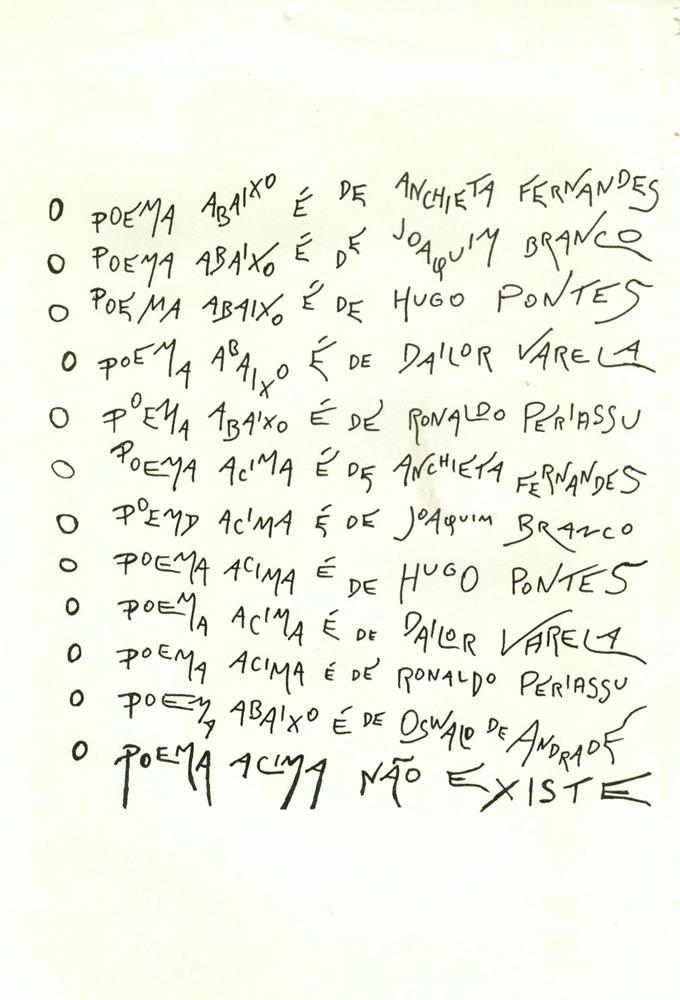 O POEMA ABAIXO É DE ANCHIETA FERNANDES
O POEMA ABAIXO É DE JOAQUIM BRANCO
O POEMA ABAIXO É DE HUGO PONTES
O POEMA ABAIXO É DE DAILOR VARELA
O POEMA ABAIXO É DE RONALDO PERIASSU
O POEMA ACIMA É DE ANCHIETA FERNANDES
O POEMA ACIMA É DE JOAQUIM BRANCO
O POEMA ACIMA É DE HUGO PONTES
O POEMA ACIMA É DE DAILOR VARELA
O POEMA ACIMA É DE RONALDO PERIASSU
O POEMA ABAIXO É DE OSWALD DE ANDRADE
O POEMA ACIMA NÃO EXISTE